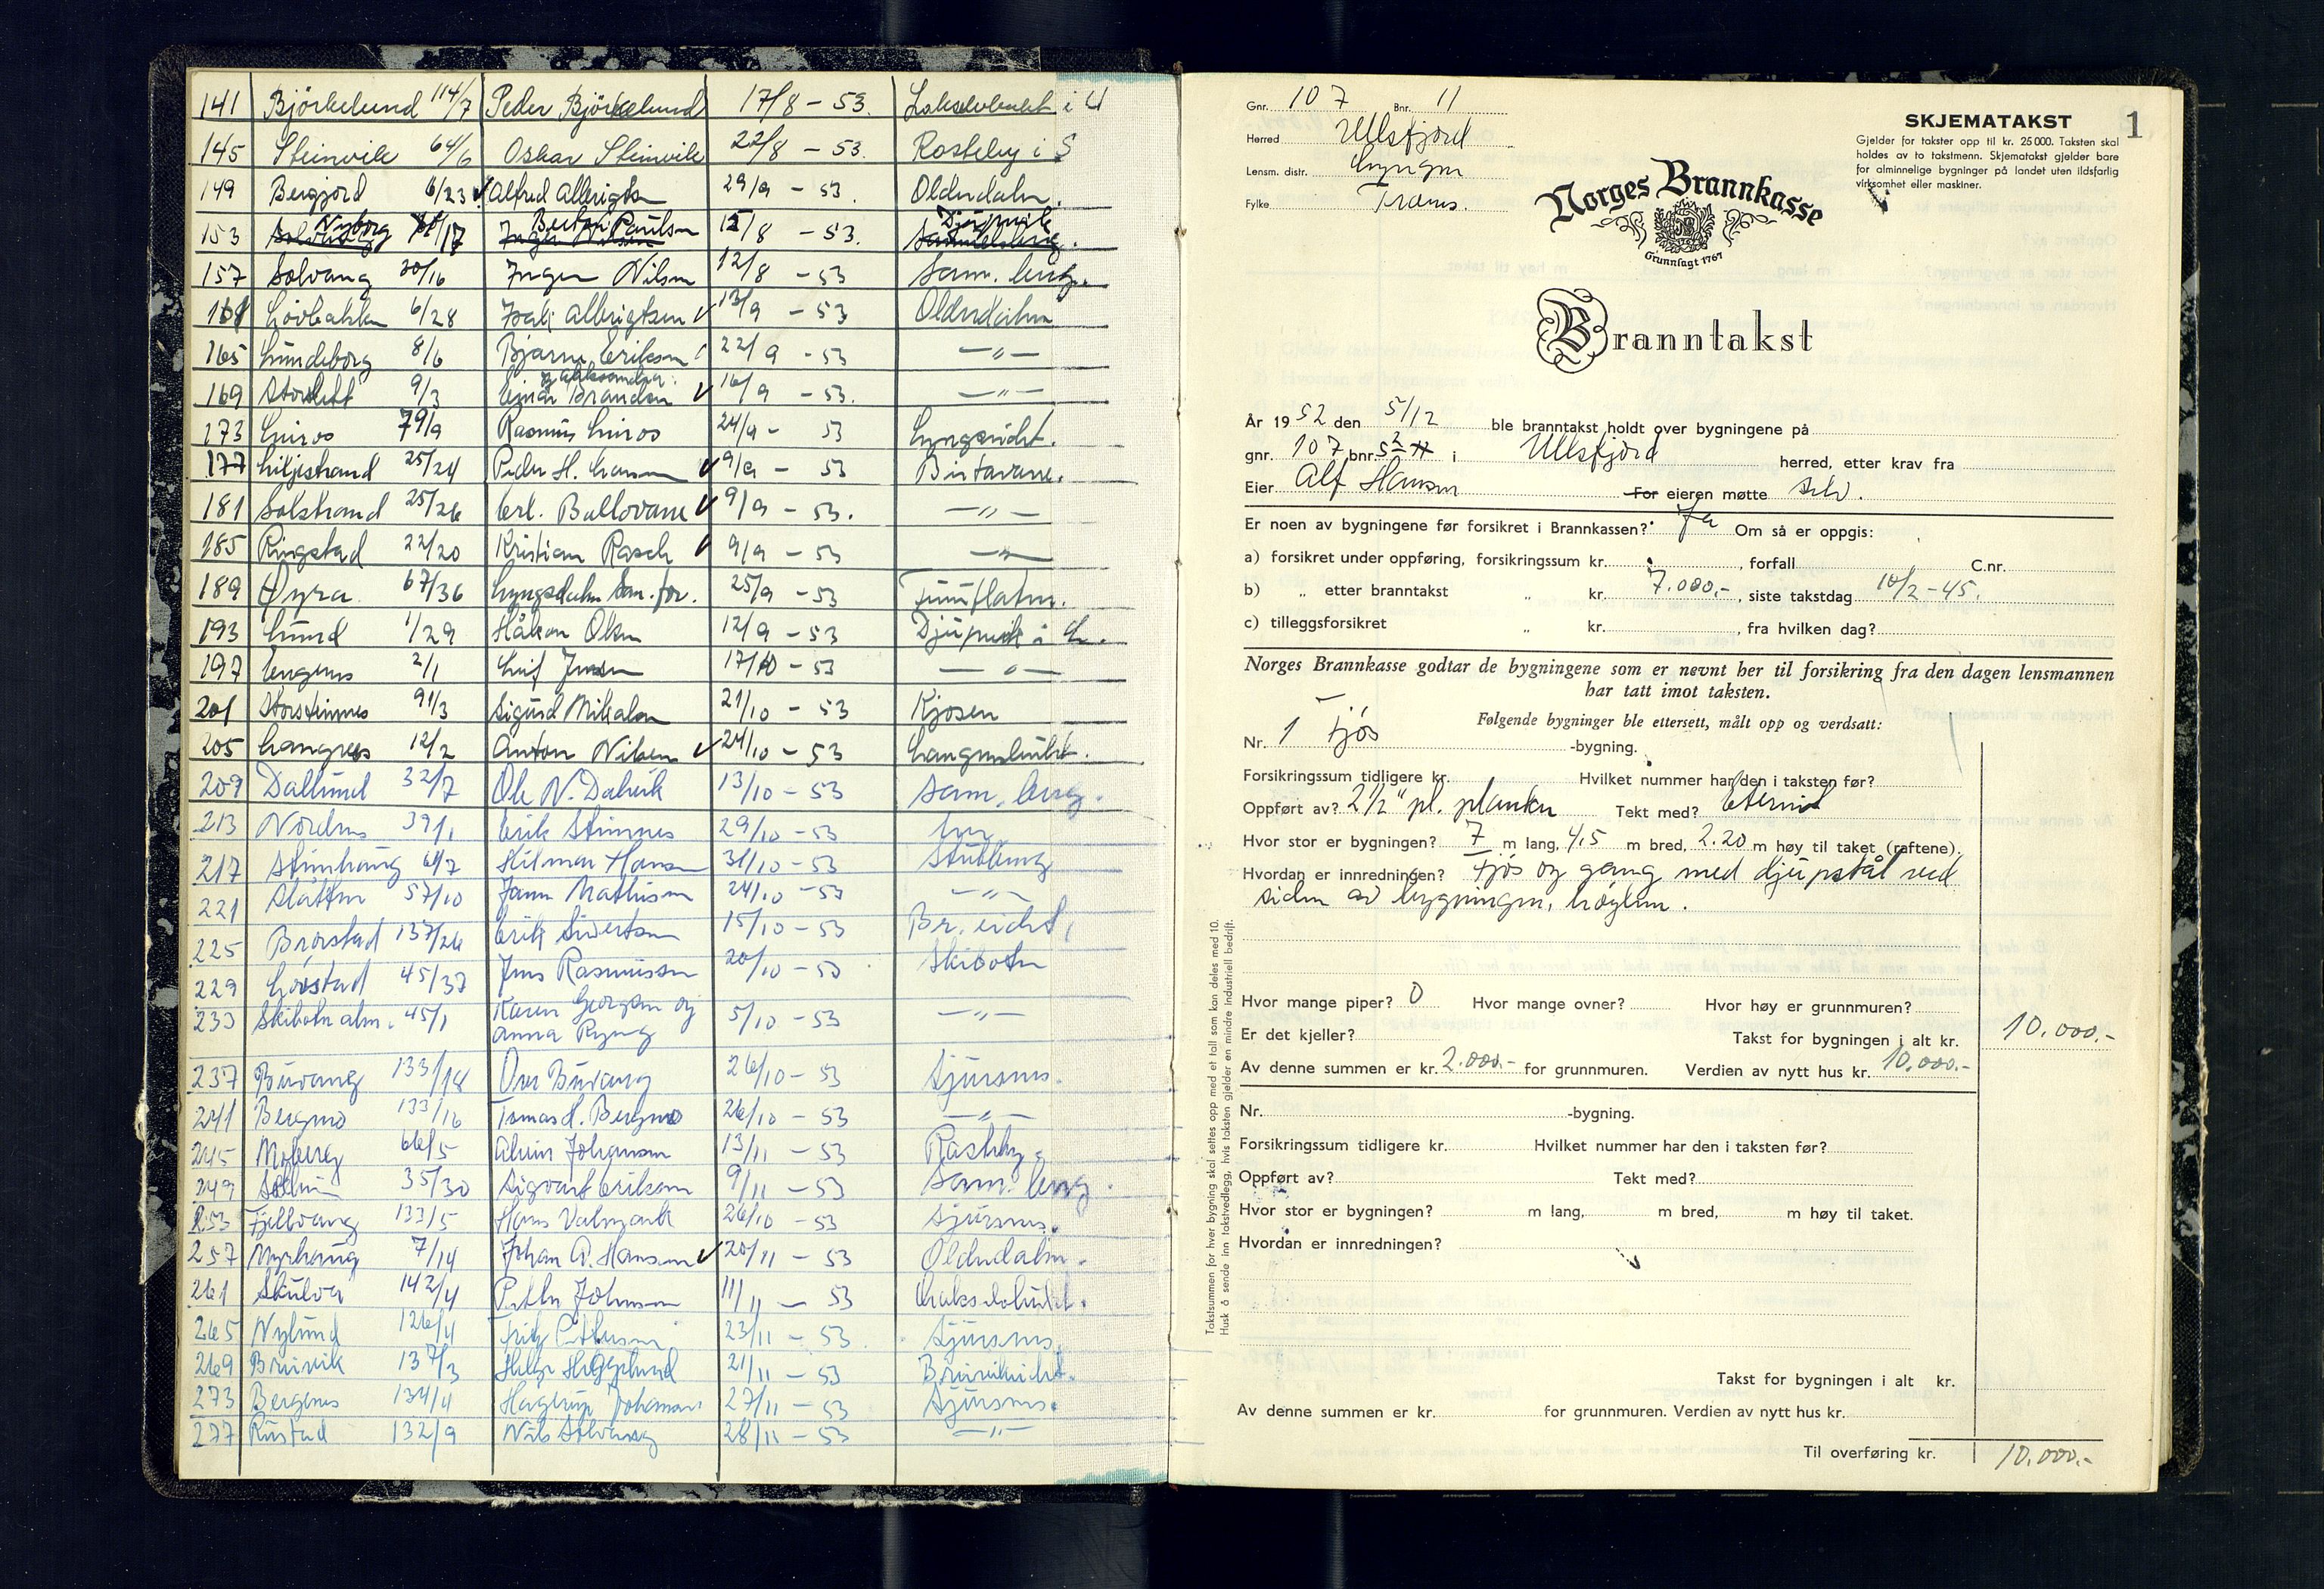 141 Björkelund 114/7 Peder Björkelund 17/8 - 53.
145 Steinvik 64/6 Oskar Steinvik 22/8 - 53. Rosteby i S
149 Bergjord 6/23 Alfred Albrigtsn 29/9 - 53. Olderdalen.
153 Nyborg /17 Berton Paulsn 15/8 - 53. Djupvik
157 Solvang 30/16 Inger Nilsen 12/8 - 53 Sam. berg.
161 Lövbakken 6/28 Albrigtsen 13/9 - 53 Olderdalen
165 Lundeborg 8/6 Bjarne Eriksen 22/9 - 53 —"—
169 Storslett 9/3 Einar Brandsn 16/9 - 53. —"—
173 79/9 Rasmus 24/9 - 53 Lyngseidet.
177 Liljestrand 25/24 Peder H. Hansen 9/9 - 53 Birtavarre.
181 Solstrand 25/26 Erl. Ballovarre 9/9 - 53. —"—
185 Ringstad 22/20 Kristian Rasch 9/9 - 53 —"—
189 Øyra 67/36 Lyngsdalen San. for. 25/9 - 53
193 Lund 1/29 Håkon Olsn 12/9 - 53 Djupvik i L.
197 Engenes 2/1 Leif Jensn 17/10 - 53 —"—
201 Storsteinnes 91/3 Sigurd Mikalsn 21/10 - 53 Kjosen
205 Langnes 12/2 Anton Nilsen 24/10 - 53
209 Dallund 32/7 Ole N. Dalvik 13/10 - 53 Sam. berg.
213 Nordnes 39/1 Erik Steinnes 29/10 - 53
217 Steinhaug 61/7 Hilmar Hansn 31/10 - 53
221 Slåtten 57/10 Mathisen 24/10 - 53 —"—
225 Brorstad 137/26 Erik Sivertsen 15/10 - 53 Br. eidet,
229 45/37 Jens Rasmussen 20/10 - 53 Skibotn
233 Skibotn alm. 45/1 Karen Georgsen og 5/10 - 53 —"—
Anna Ryeng
237 Buvang 133/18 Ove Buvang 26/10 - 53 Sjursnes.
241 Bergmo 133/16 Tomas H. Bergmo 26/10 - 53 —"—
245 Moberg 66/5 Alvin Johansen 13/11 - 53 Rasteby.
249 35/30 Sigvart Eriksen 9/11 - 53 Sam. berg.
253 Fjellvang 133/5 Hans Valmark 26/10 - 53 Sjursnes.
257 Myrhaug 7/14 Johan A. Hansen 20/11 - 53 Olderdalen.
261 142/4 Petter Johnsen 11/11 - 53
265 Nylund 126/4 23/11 - 53 Sjursnes.
269 Breivik 137/3 Helge Heggelund 21/11 - 53 Breivikeidet.
273 Bergenes 134/4 Hagerup Johansen 27/11 - 53 Sjursnes.
277 Rustad 132/9 Nils Solvang 28/11 - 53 —"—
Gnr. 107 Bnr. 11
Herred Ullsfjord
Lensm. distr. Lyngen
Fylke Troms.
SKJEMATAKST 1
Gjelder for takster opp til kr. 25 000. Taksten skal
holdes av to takstmenn. Skjematakst gjelder bare
for alminnelige bygninger på landet uten ildsfarlig
virksomhet eller maskiner.
Norges Brannkasse
Grunnlagt 1767
Branntakst
År 1952 den 5/12 ble branntakst holdt over bygningene på
gnr. 107 bnr. 52 11 i Ullsfjord herred, etter krav fra
Eier Alf Hansen For eieren møtte selv.
Er noen av bygningene før forsikret i Brannkassen? Ja Om så er oppgis:
a) forsikret under oppføring, forsikringssum kr. , forfall C.nr.
b) „ etter branntakst „ kr. 7.000.- , siste takstdag 10/2-45.
c) tilleggsforsikret „ kr. , fra hvilken dag?
Norges Brannkasse godtar de bygningene som er nevnt her til forsikring fra den dagen lensmannen
har tatt imot taksten.
Følgende bygninger ble ettersett, målt opp og verdsatt:
Nr. 1 Fjös -bygning.
Forsikringssum tidligere kr. Hvilket nummer har den i taksten før?
Oppført av? 2½" pl. planker Tekt med? Eternit
Hvor stor er bygningen? 7 m lang, 4,5 m bred, 2.20 m høy til taket (raftene).
Hvordan er innredningen? Fjös og gang med djupstål ved
siden av bygningen, høylem.
Hvor mange piper? 0 Hvor mange ovner? Hvor høy er grunnmuren?
Er det kjeller? Takst for bygningen i alt kr. 10.000.-
Av denne summen er kr. 2.000.- for grunnmuren. Verdien av nytt hus kr. 10.000.-
Nr. -bygning.
Forsikringssum tidligere kr. Hvilket nummer har den i taksten før?
Oppført av? Tekt med?
Hvor stor er bygningen? m lang, m bred, m høy til taket.
Hvordan er innredningen?
Takst for bygningen i alt kr.
Av denne summen er kr. for grunnmuren. Verdien av nytt hus kr.
Til overføring kr. 10.000.-
Takstsummen for hver bygning skal settes opp med et tall som kan deles med 10.
Husk å sende inn takstvedlegg, hvis taksten gjelder en mindre industriell bedrift.